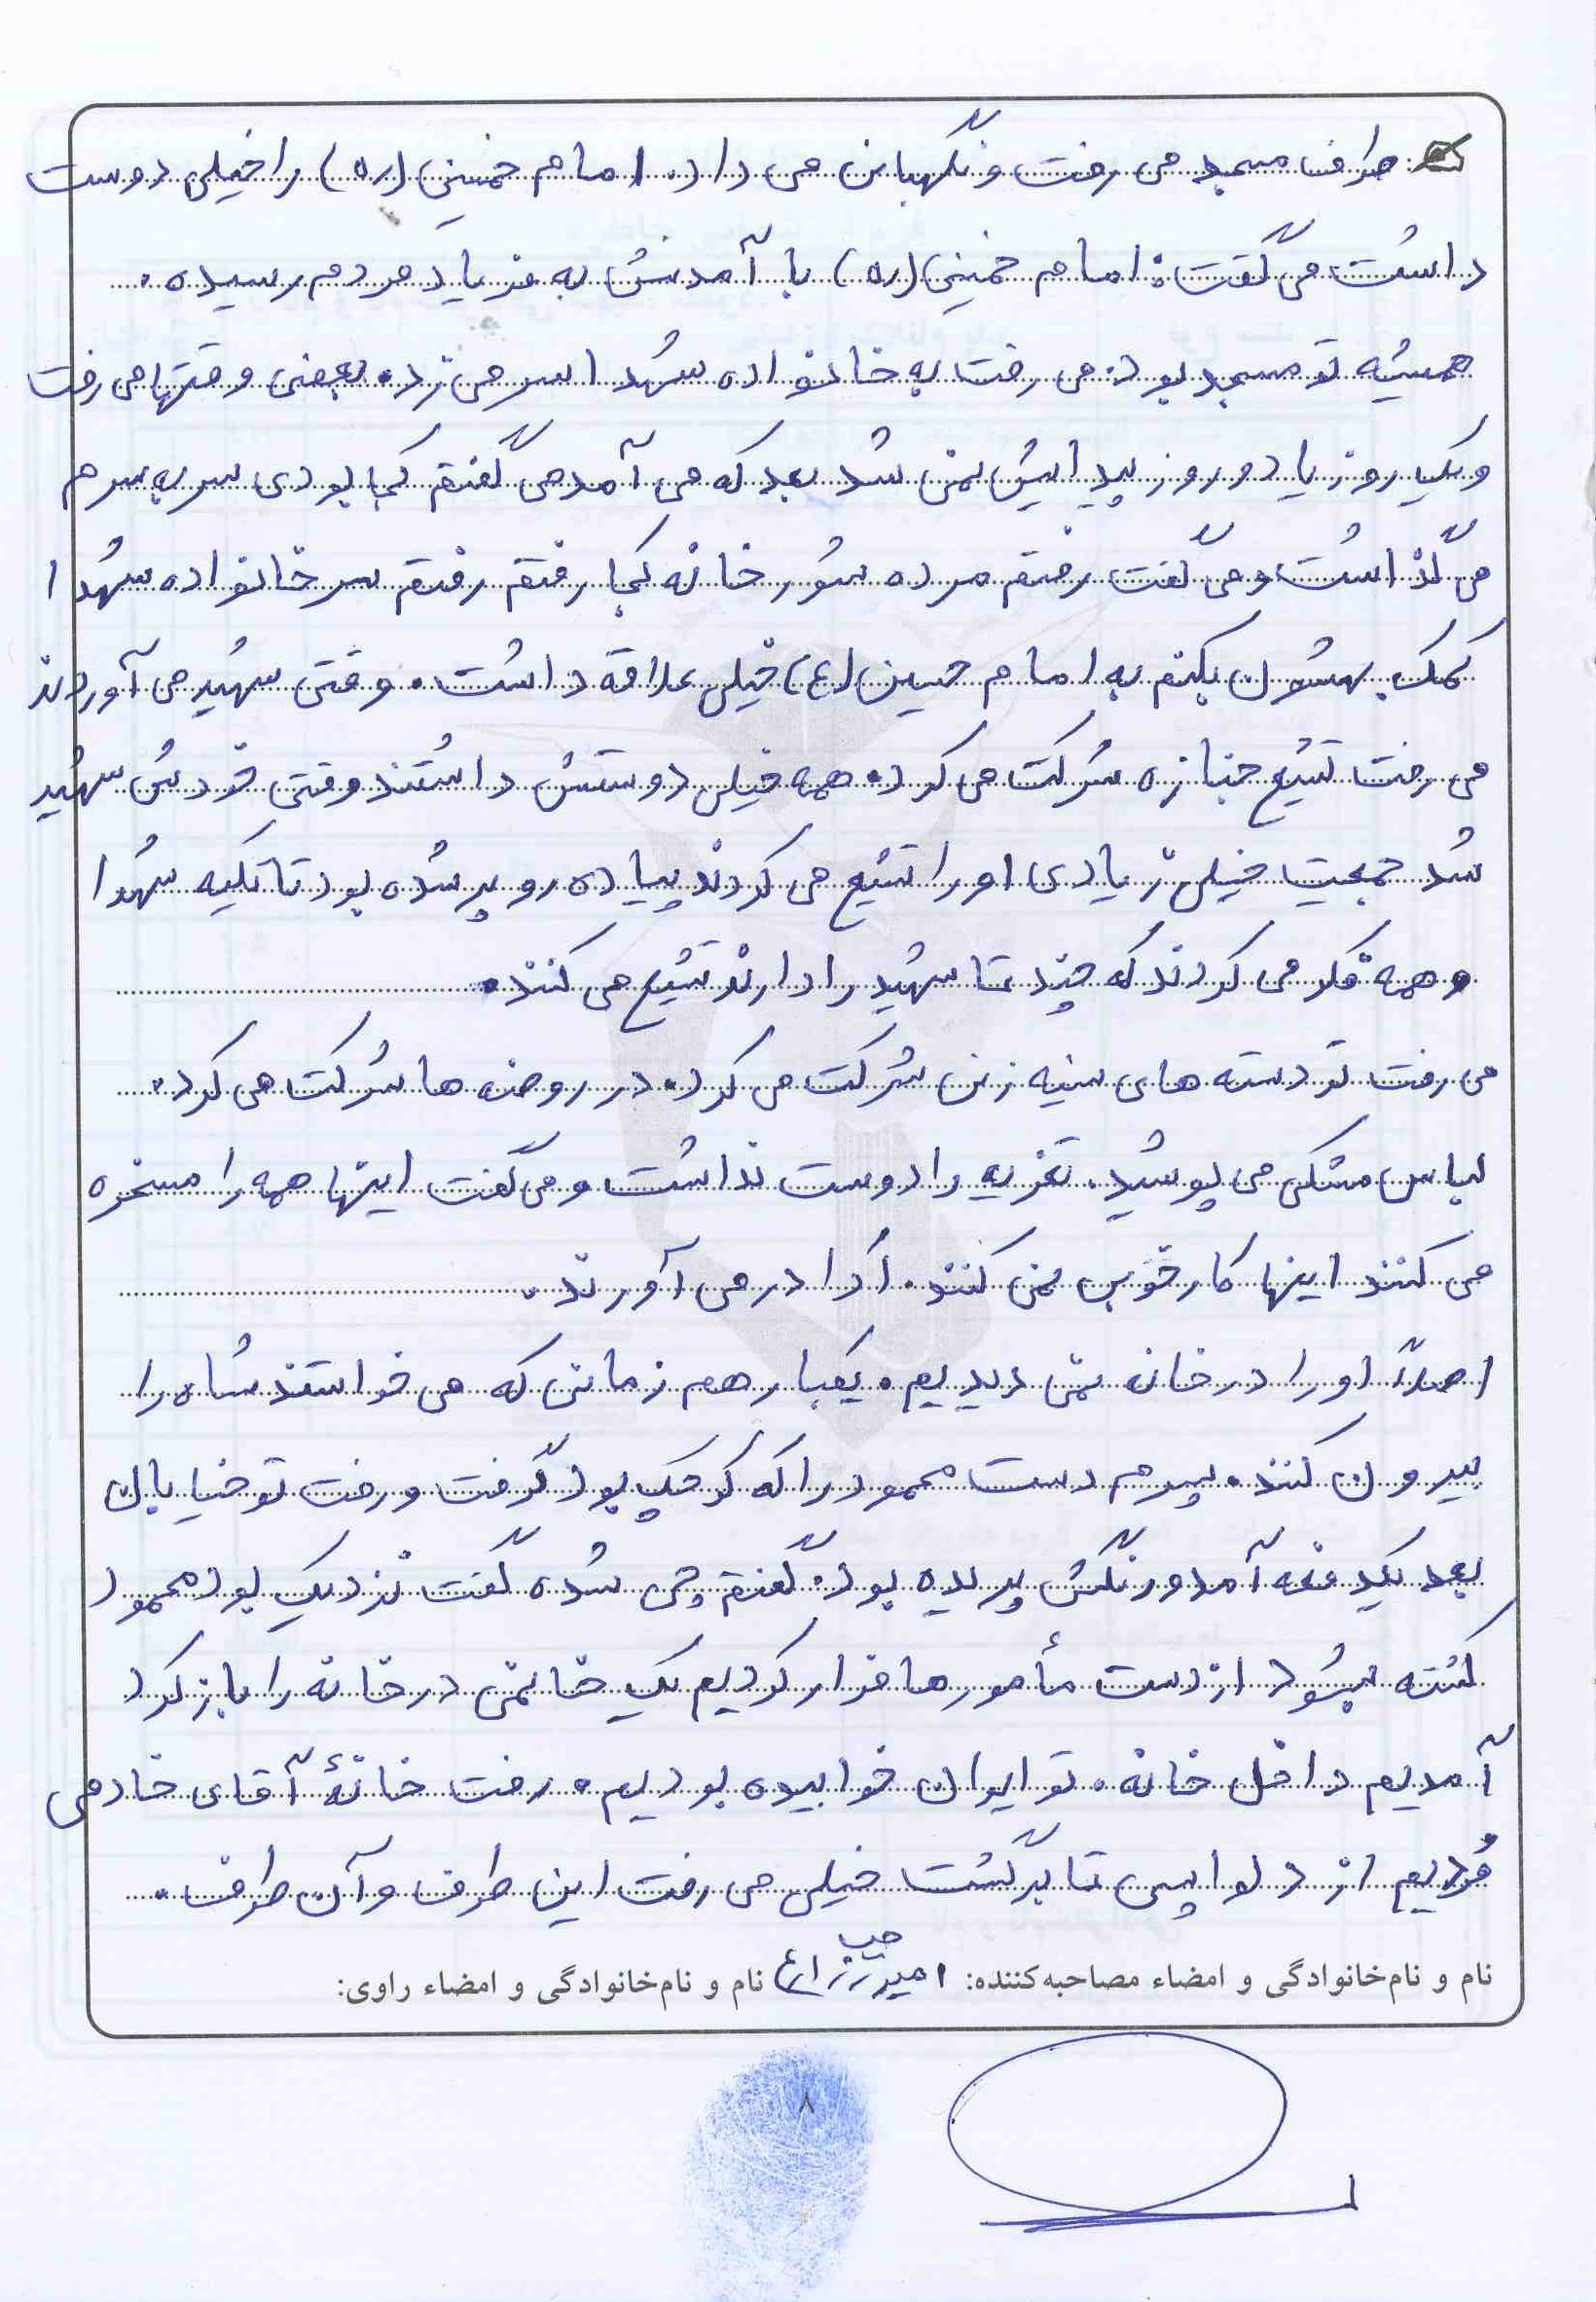 طرف مسجد می رفت و نگهبانی می داد. امام خمینی (ره) را خیلی دوست
داشت می گفت: امام خمینی (ره) با آمدنش به فریاد مردم رسیده.
همیشه تو مسجد بود. می رفت به خانواده شهدا سر می زد. بعضی وقتها می رفت
و یک روز یا دو روز پیدایش نمی شد بعد که می آمد می گفتم کجا بودی سر به سرم
می گذاشت و می گفت رفتم مرده شور خانه کجا رفتم رفتم سر خانواده شهدا
کمک بهشون بکنم به امام حسین (ع) خیلی علاقه داشت. وقتی شهید می آوردند
می رفت تشیع جنازه شرکت می کرد. همه خیلی دوستش داشتند وقتی خودش شهید
شد جمعیت خیلی زیادی او را تشیع می کردند پیاده رو پر شده بود تا تکیه شهدا
و همه فکر می کردند که چند تا شهید را دارند تشیع می کنند.
می رفت تو دسته های سینه زنی شرکت می کرد. در روضه ها شرکت می کرد.
لباس مشکی می پوشید. تعزیه را دوست نداشت و می گفت اینها همه را مسخره
می کنند اینها کار خوبی نمی کنند. اَدا در می آورند.
اصلاً او را در خانه نمی دیدیم. یکبار هم زمانی که می خواستند شاه را
بیرون کنند. پسرم دست محمود را که کوچک بود گرفت و رفت تو خیابان
بعد یکدفعه آمد و رنگش پریده بود. گفتم چی شده گفت نزدیک بود محمود
کشته بشود از دست مأمورها فرار کردیم یک خانمی در خانه را باز کرد
آمدیم داخل خانه. تو ایوان خوابیده بودیم. رفت خانۀ آقای خادمی
مُردیم از دلواپسی تا برگشت خیلی می رفت این طرف و آن طرف.
نام و نام‌خانوادگی و امضاء مصاحبه‌کننده: نام و نام‌خانوادگی و امضاء راوی:
۸